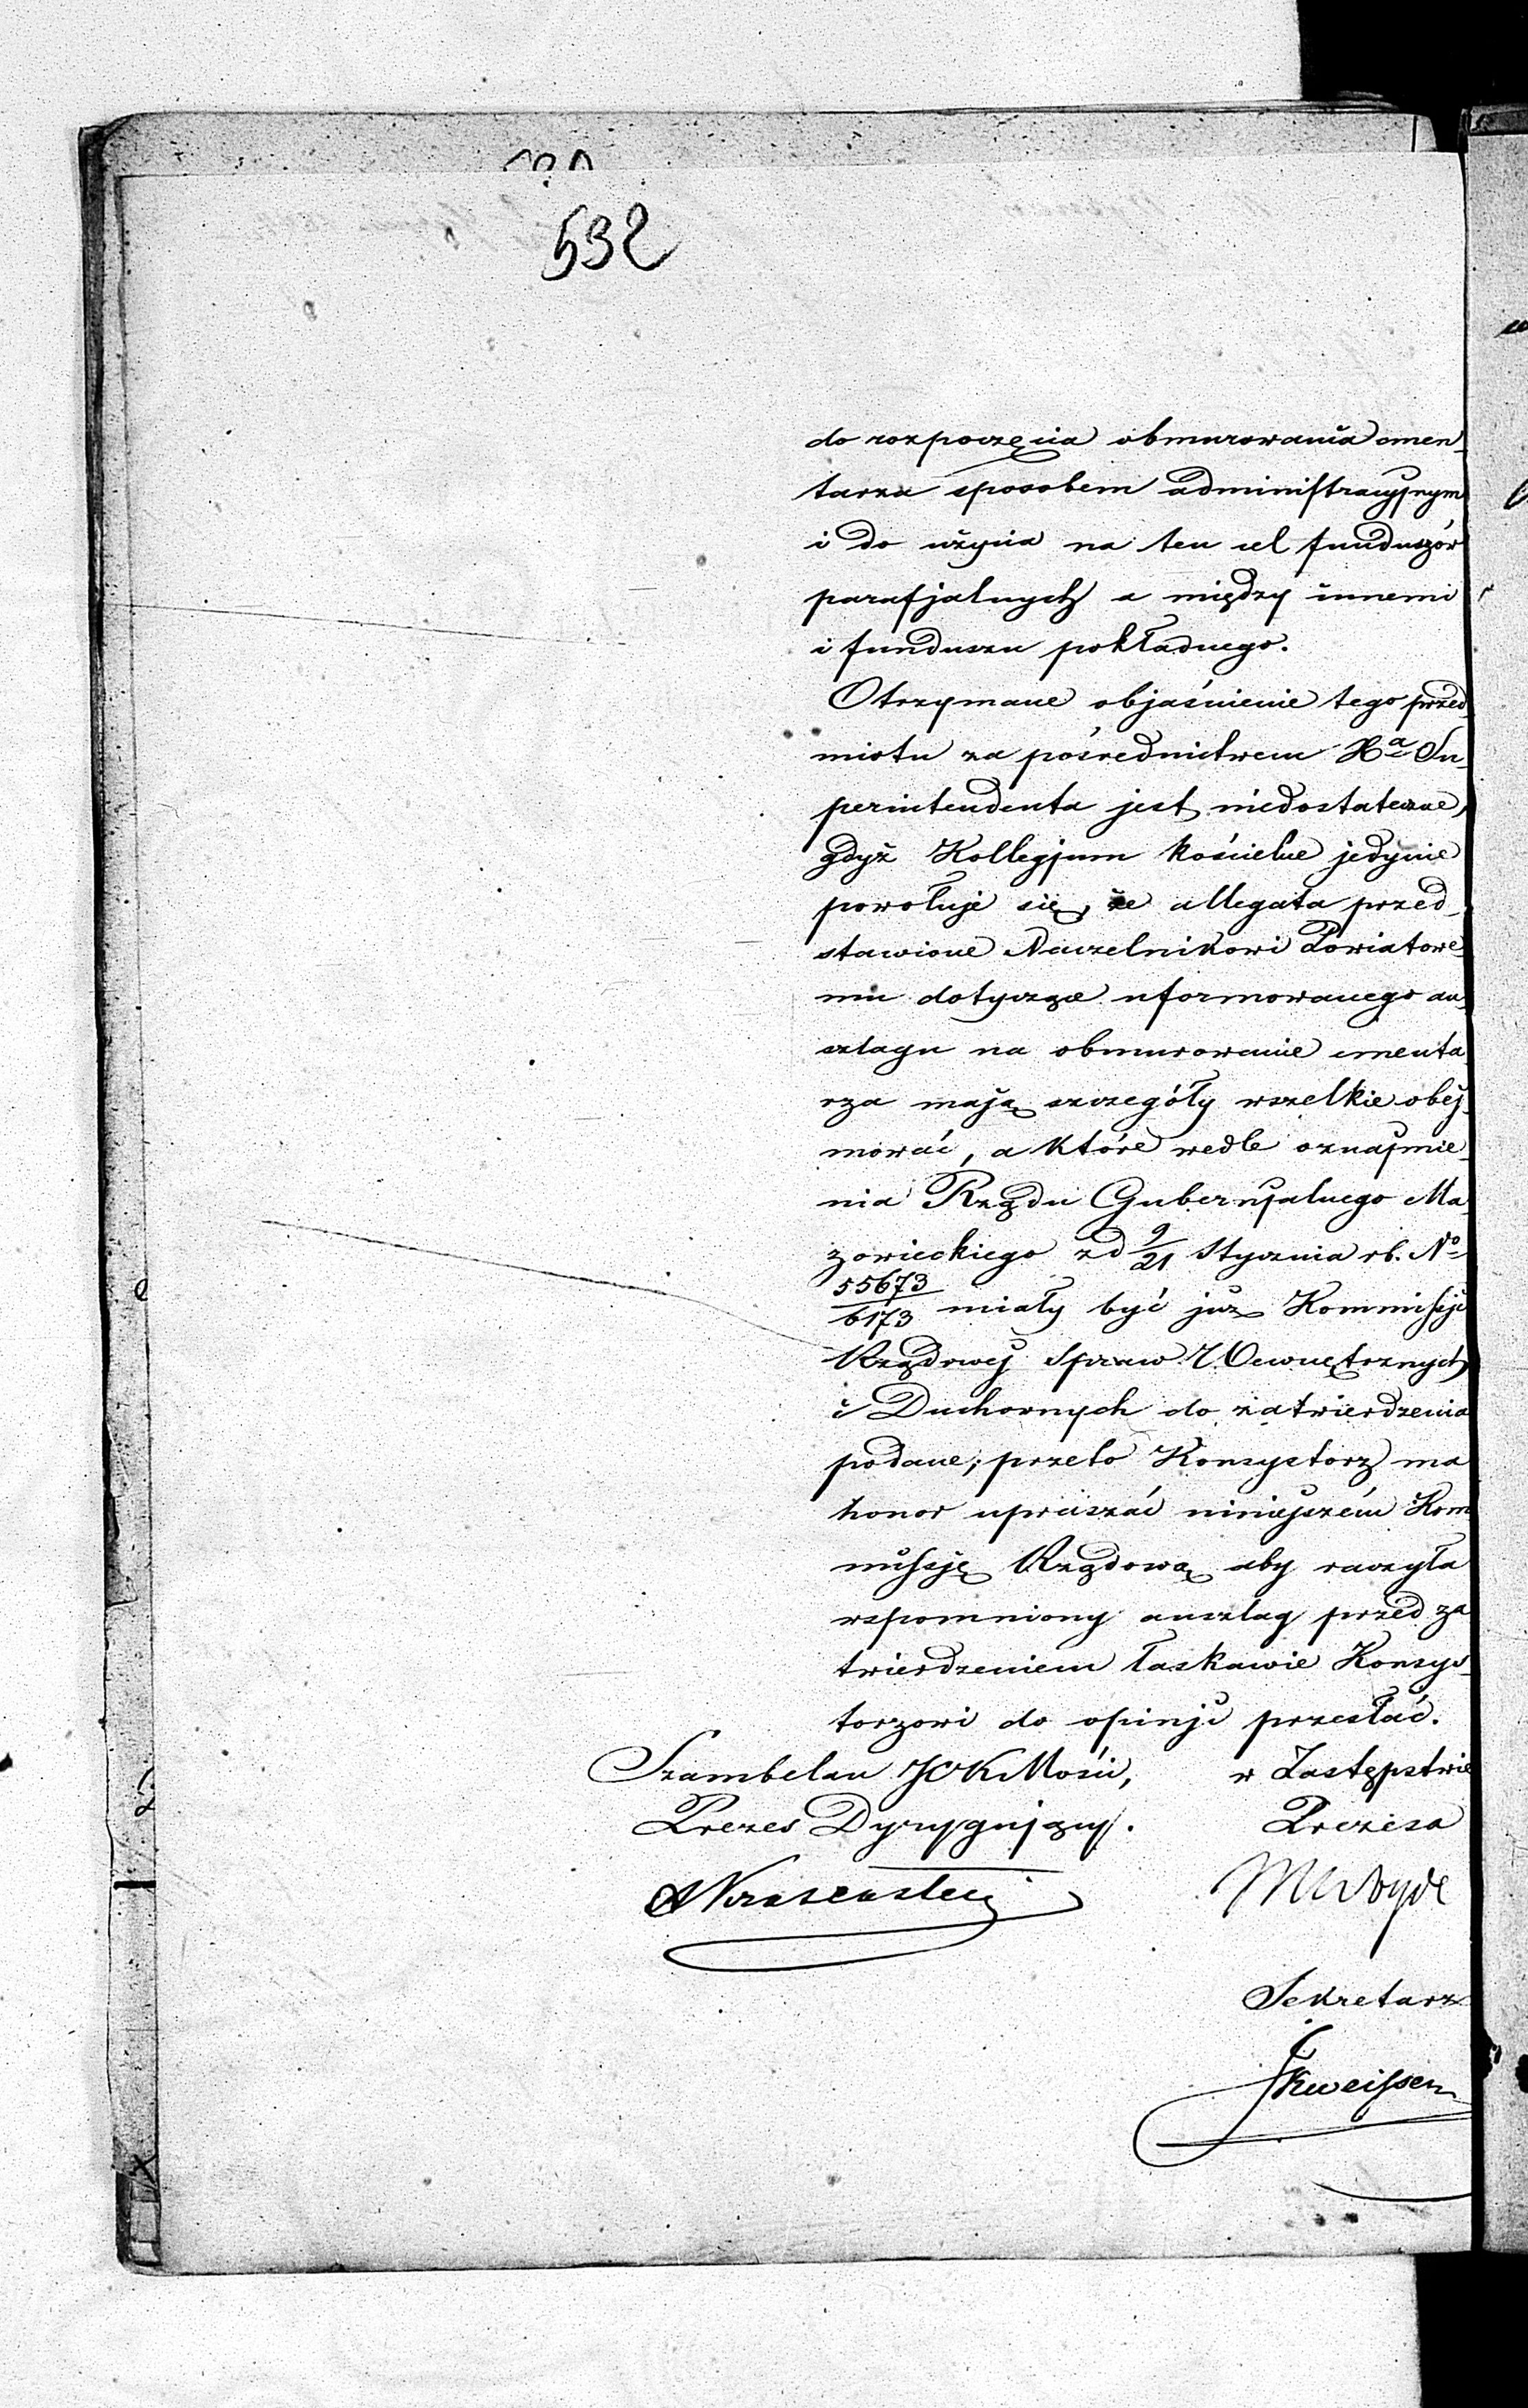 532
do rozpoczęcia obmurowania cmen-
tarza sposobem administracyjnym
i do użycia na ten cel funduszów
parafjalnych a między innemi
i funduszu pokładnego.
Otrzymane objaśnienie tego przed-
miotu za pośrednictwem Xa Su-
perintendenta jest niedostateczne,
gdyż Kollegjum kościelne jedynie
powołuje się, że allegata przed-
stawione Naczelnikowi Powiatowe-
mu dotyczące uformowanego an-
szlagu na obmurowanie cmenta-
rza mają szczegóły wszelkie obej-
mować, a które wedle oznajmie-
nia Rządu Gubernjalnego Ma-
zowieckiego z d 9/21 Stycznia rb. No
55673/6173 miały być już Kommissji
Rządowej Spraw Wewnętrznych
i Duchownych do zatwierdzenia
podane; przeto Konsystorz ma
honor upraszać niniejszém Kom
missję Rządową aby raczyła
wspomniony anszlag przed za
twierdzeniem łaskawie Konsys-
torzowi do opinji przesłać.
Szambelan JCKMości, w Zastępstwie
Prezes Dyrygujący. Prezesa
Sekretarz